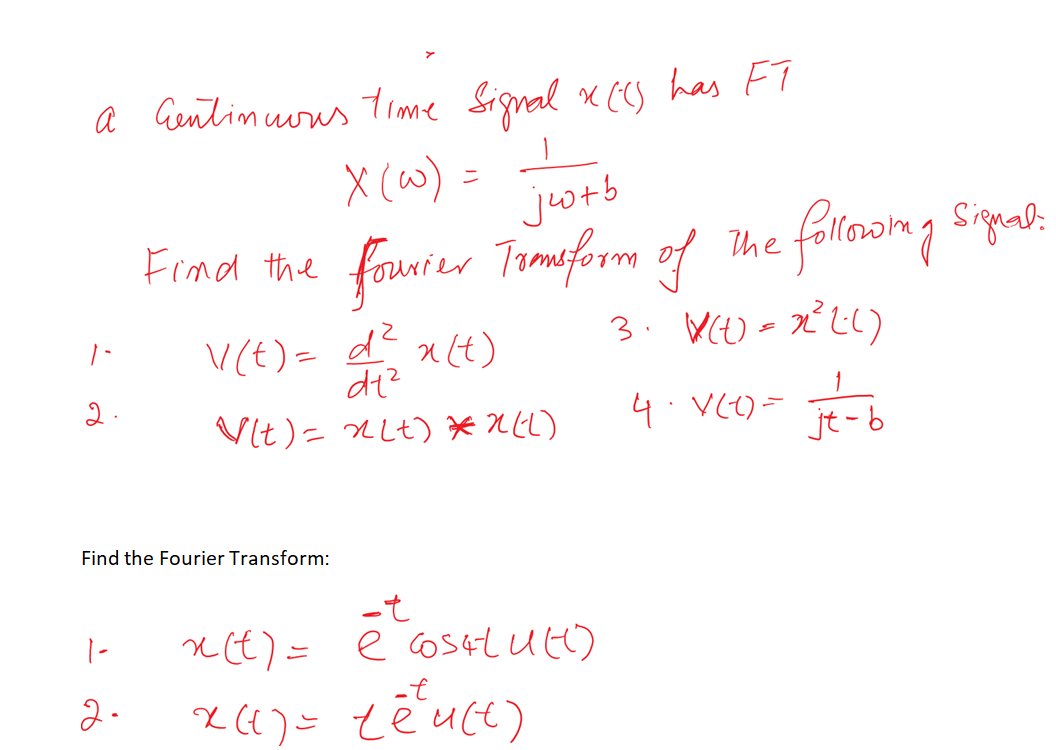 a Continuous Time Signal x(t) has FT
X(ω) = 1/(jω+b)
Find the fourier Transform of The following Signal:
1- V(t) = d²/dt² x(t)
2. V(t) = x(t) * x(t)
3. V(t) = x²(t)
4. V(t) = 1/(jt-b)
Find the Fourier Transform:
1- x(t) = e^-t cos4t u(t)
2. x(t) = t e^-t u(t)